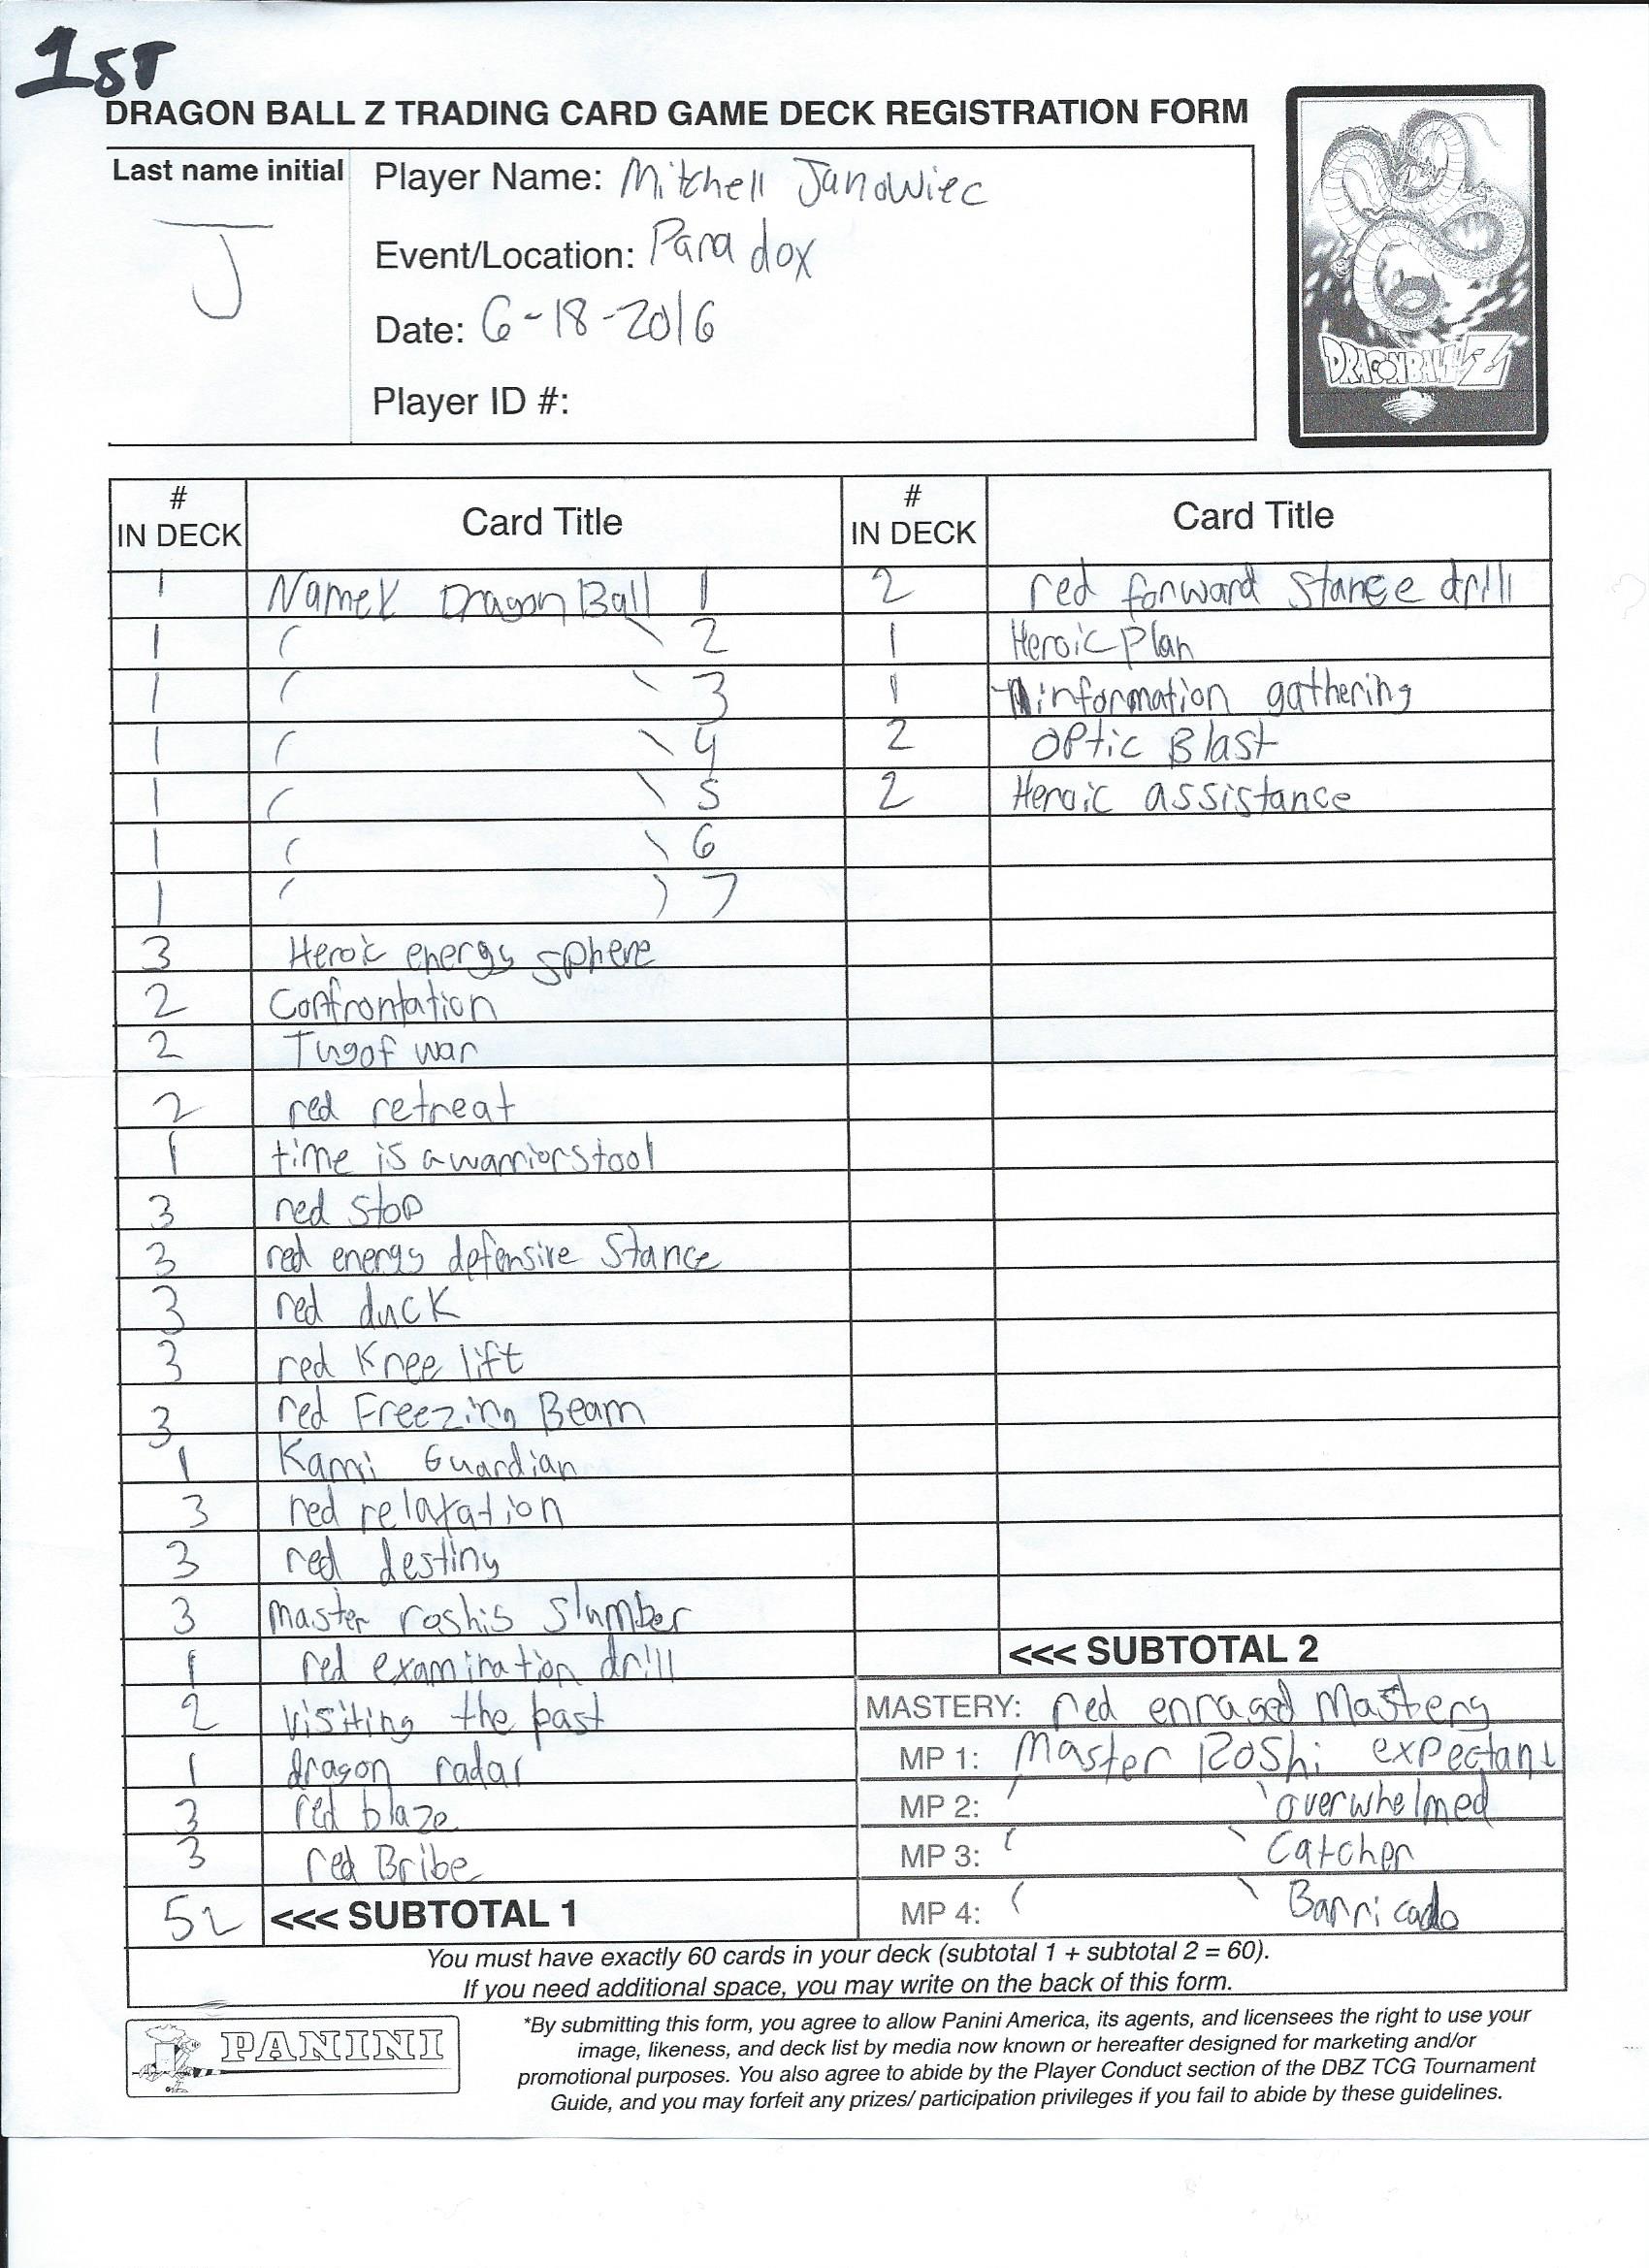 1ST
DRAGON BALL Z TRADING CARD GAME DECK REGISTRATION FORM
Last name initial
J
Player Name: Mitchell Janowiec
Event/Location: Paradox
Date: 6-18-2016
Player ID #:
DRAGONBALL Z
# IN DECK Card Title # IN DECK Card Title
1 Namek Dragon Ball 1 2 red forward stance drill
1 ( \ 2 1 Heroic Plan
1 ( \ 3 1 information gathering
1 ( \ 4 2 Optic Blast
1 ( \ 5 2 Heroic assistance
1 ( \ 6
1 ( ) 7
3 Heroic energy sphere
2 Confrontation
2 Tug of war
2 red retreat
1 time is a warriors tool
3 red stop
3 red energy defensive stance
3 red duck
3 red Knee lift
3 red Freezing Beam
1 Kami Guardian
3 red relaxation
3 red destiny
3 master roshis slumber
1 red examination drill <<< SUBTOTAL 2
2 visiting the past MASTERY: red enraged Mastery
1 dragon radar MP 1: Master Roshi expectant
3 red blaze MP 2: ( \ overwhelmed
3 red Bribe MP 3: ( \ Catcher
52 <<< SUBTOTAL 1 MP 4: ( \ Barricade
You must have exactly 60 cards in your deck (subtotal 1 + subtotal 2 = 60).
If you need additional space, you may write on the back of this form.
PANINI
*By submitting this form, you agree to allow Panini America, its agents, and licensees the right to use your
image, likeness, and deck list by media now known or hereafter designed for marketing and/or
promotional purposes. You also agree to abide by the Player Conduct section of the DBZ TCG Tournament
Guide, and you may forfeit any prizes/ participation privileges if you fail to abide by these guidelines.